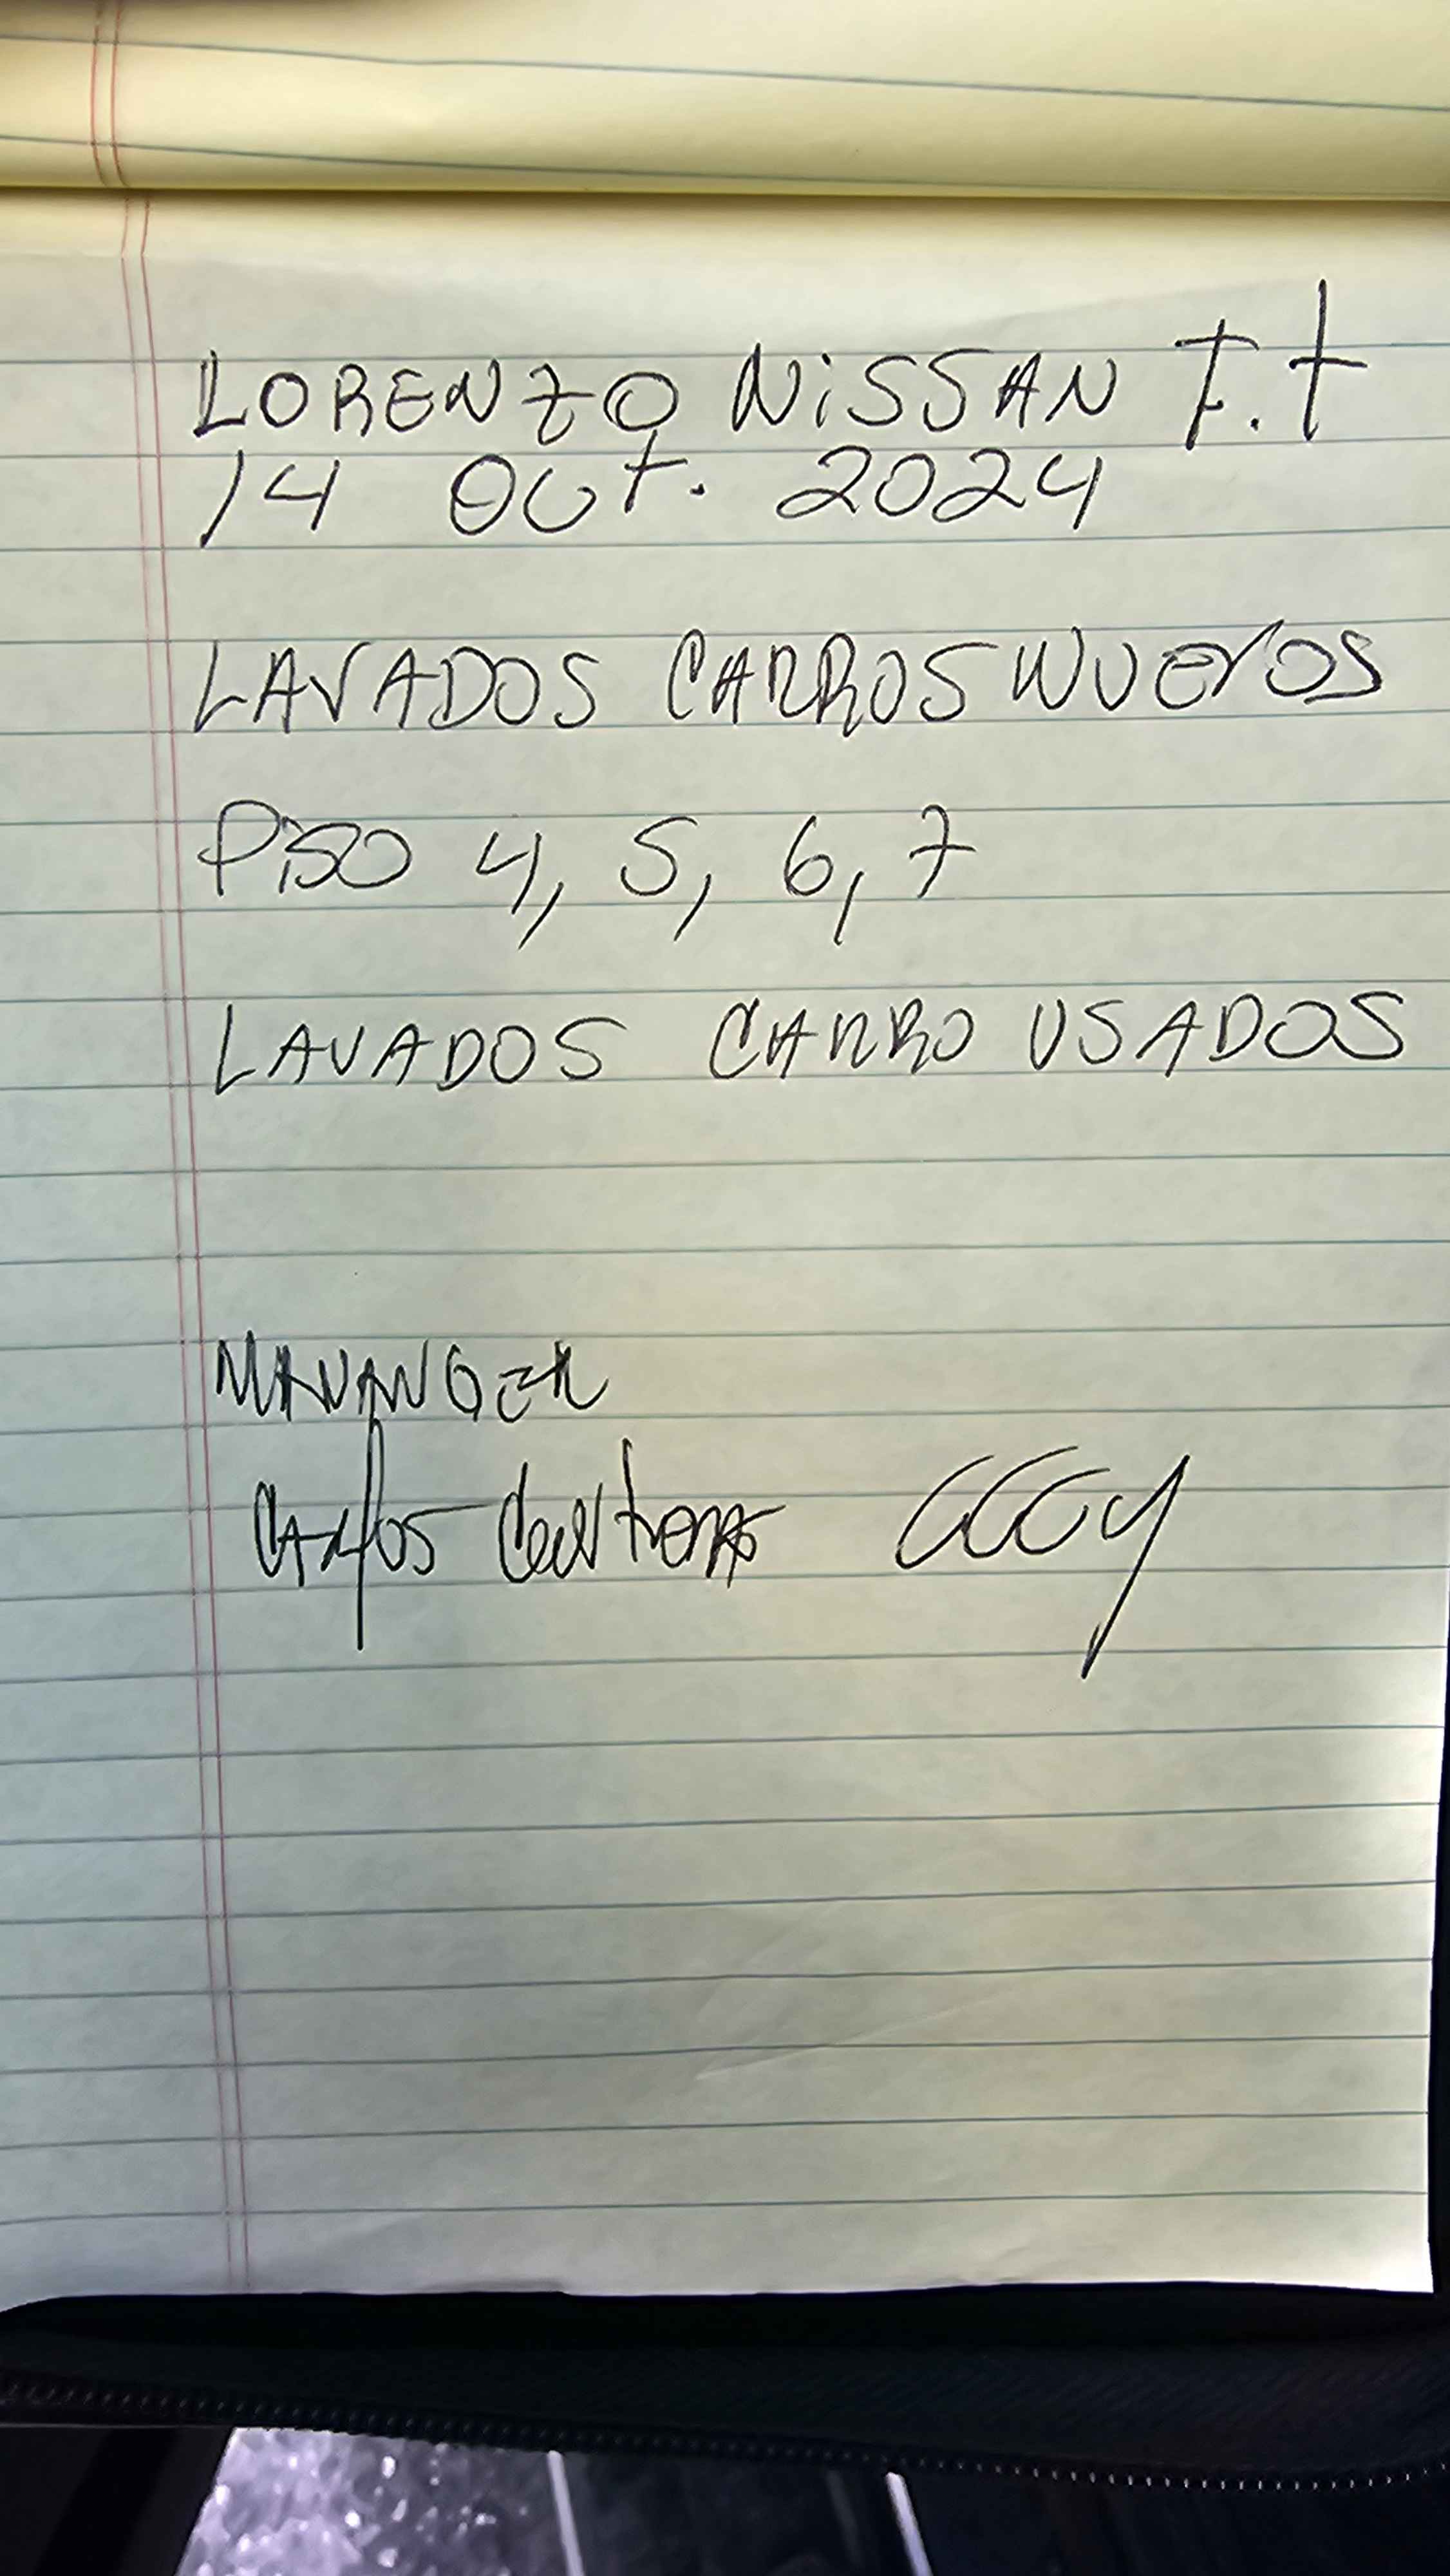 LORENZO NiSSAN F.t
14 Oct. 2024
LAVADOS CARROS NUevOS
PiSO 4, 5, 6, 7
LAVADOS CARRO USADOS
MANANGER
CARlos